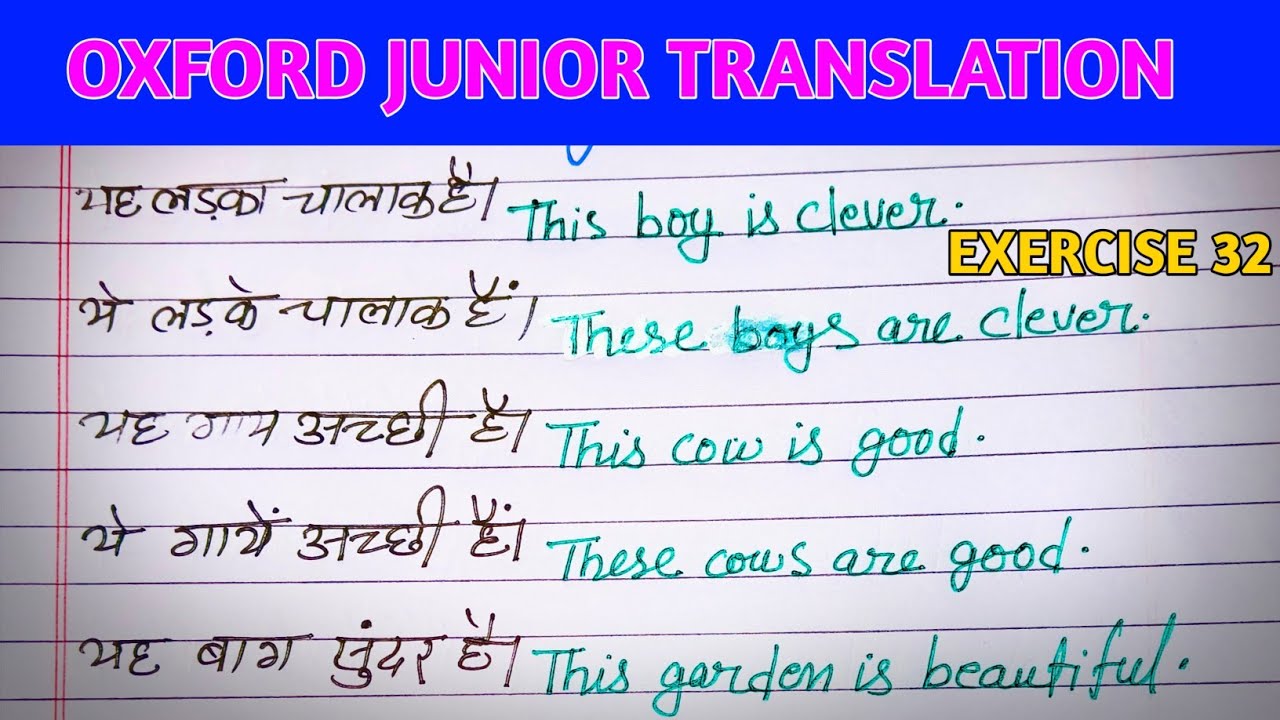 OXFORD JUNIOR TRANSLATION
यह लड़का चालाक है। This boy is clever.
EXERCISE 32
ये लड़के चालाक हैं। These boys are clever.
यह गाय अच्छी है। This cow is good.
ये गायें अच्छी हैं। These cows are good.
यह बाग सुंदर है। This garden is beautiful.